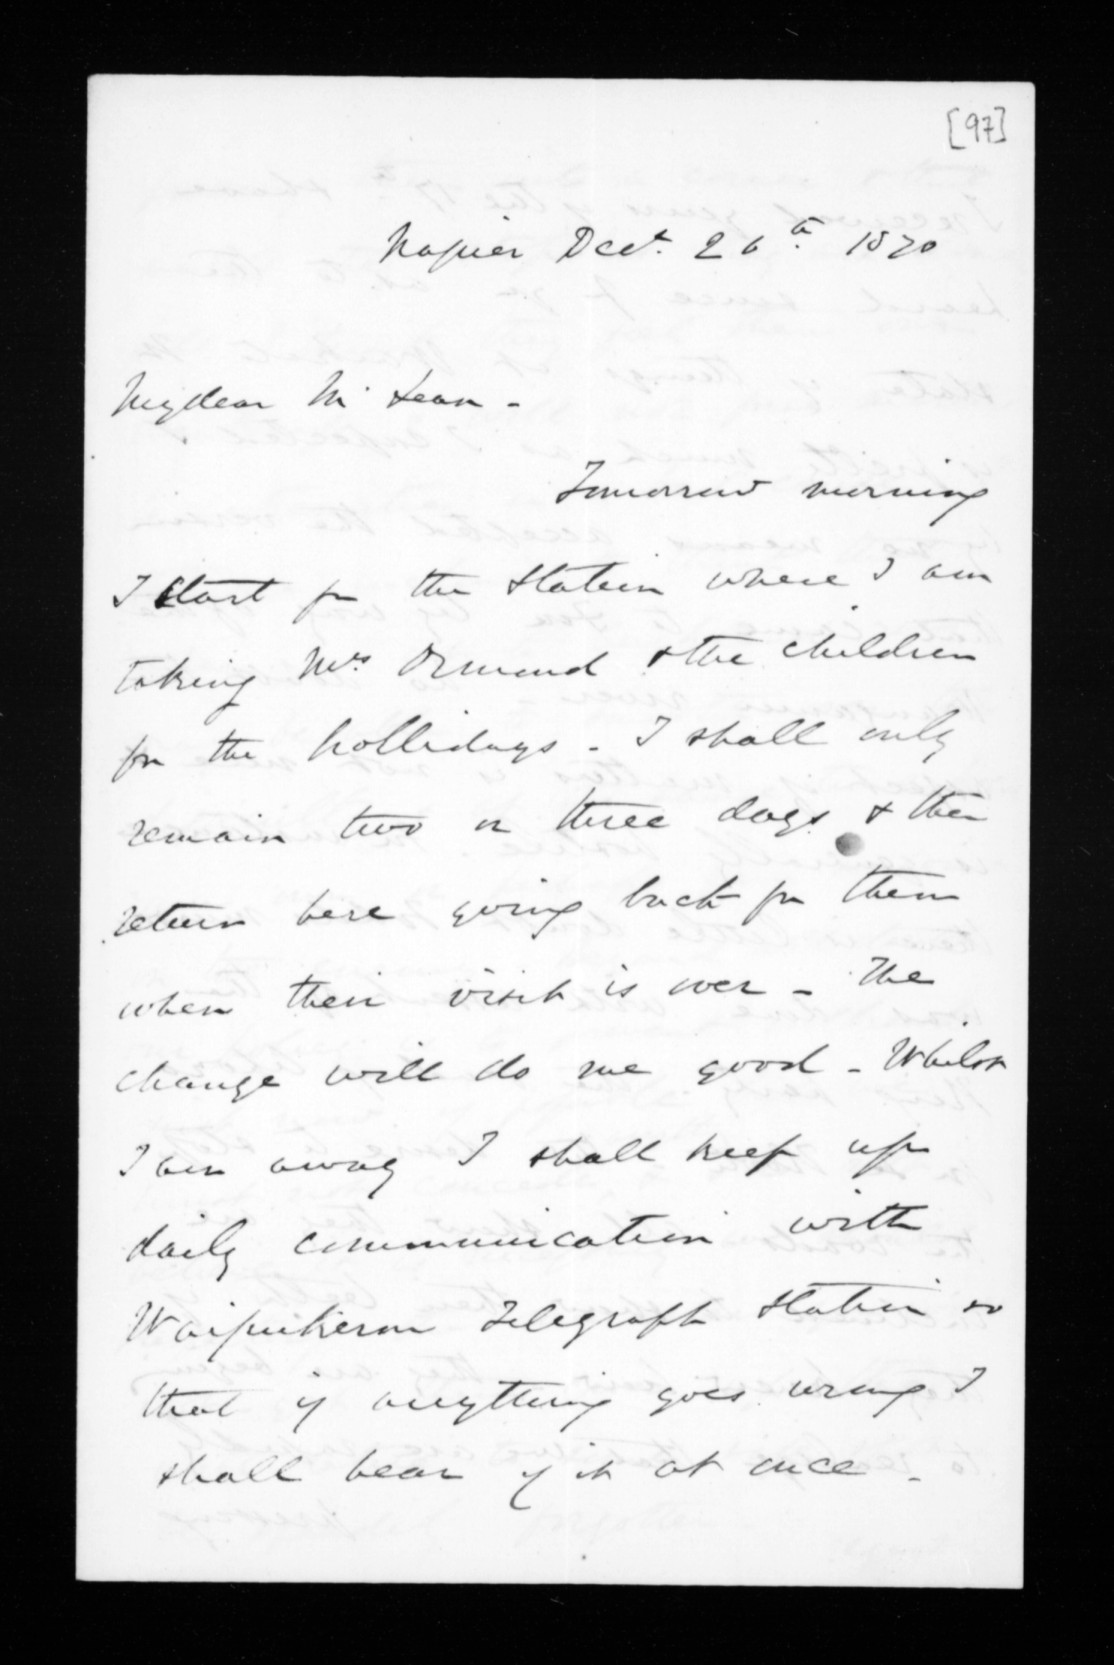 [97]
Napier Decr. 26th 1870
My dear McLean -
Tomorrow morning
I start for the station where I am
taking Mrs Ormond & the children
for the hollidays - I shall only
remain two or three days & then
return here going back for them
when their visit is over - The
change will do me good - Whilst
I am away I shall keep up
daily communication with
Waipukerau Telegraph Station so
that if anything goes wrong I
shall hear of it at once -